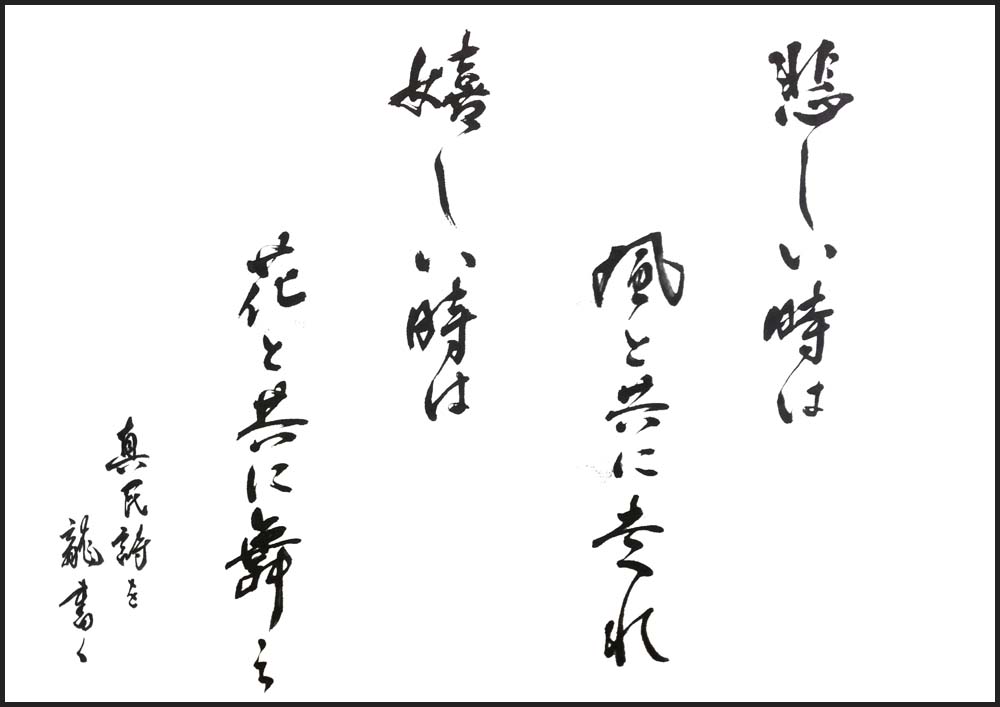 悲しい時は
風と共に走れ
嬉しい時は
花と共に舞え
真民詩を
龍書く